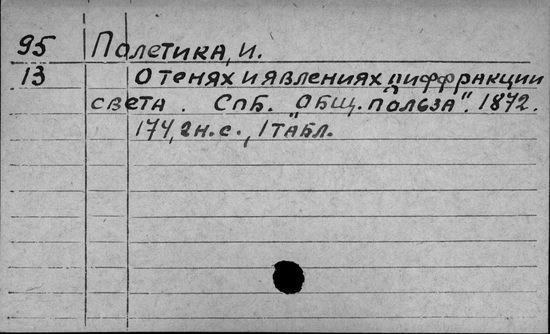 95 Полетика, И.
13 О тенях и явлениях диффракции
света. Спб. "Общ. польза". 1872.
174, 2н. с., 1 табл.